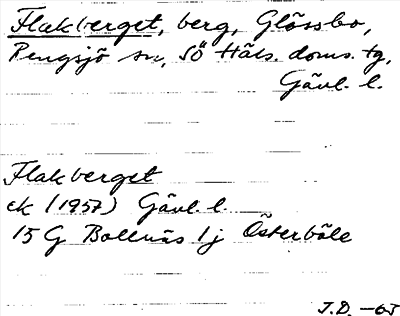 Flakberget, berg, Glössbo,
Rengsjö sn, SÖ Häls. doms. tg,
Gävl. l.
Flakberget
ek (1957) Gävl. l.
15 G Bollnäs 1j Österböle
J.D. -63